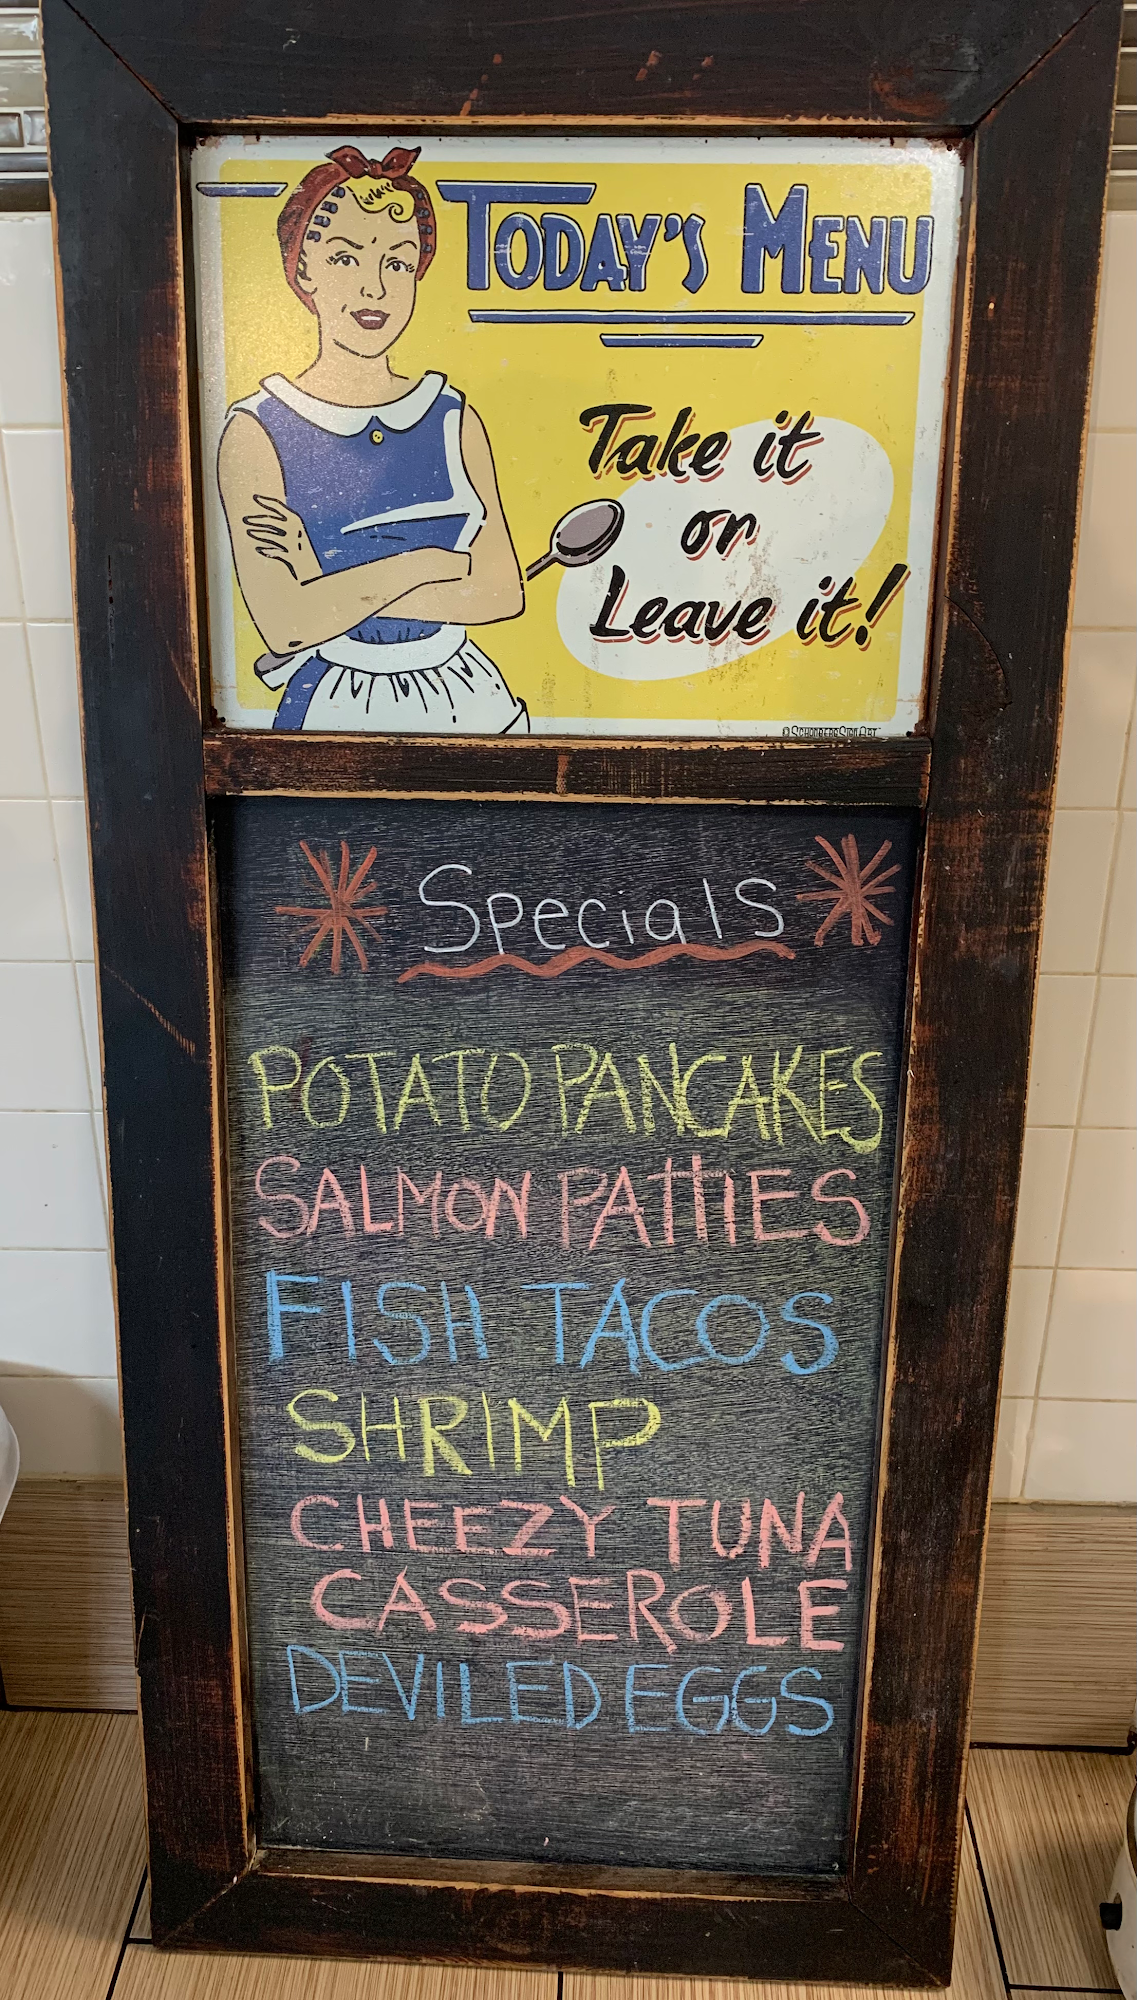 TODAY'S MENU
Take it
or
Leave it!
Specials
POTATO PANCAKES
SALMON PATTIES
FISH TACOS
SHRIMP
CHEEZY TUNA
CASSEROLE
DEVILED EGGS